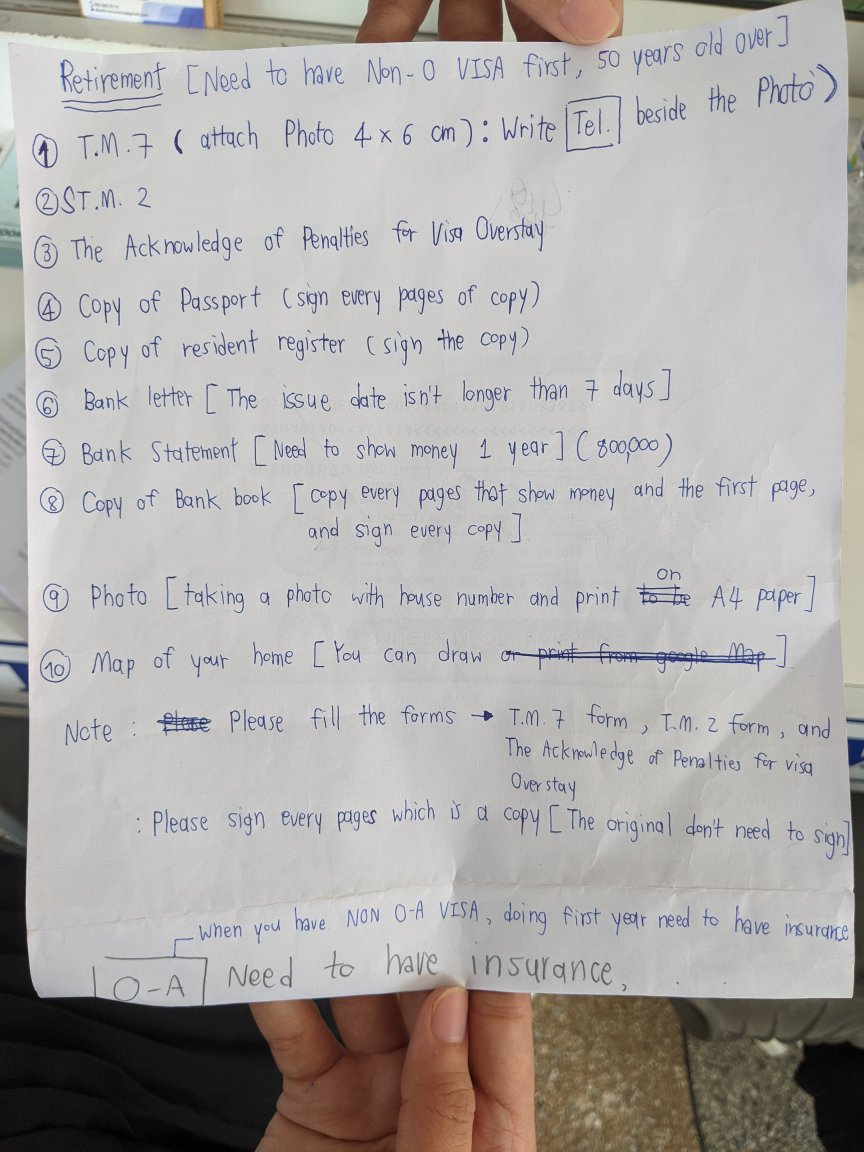 Retirement [Need to have Non-O VISA first, 50 years old over]
① T.M.7 ( attach Photo 4 x 6 cm ) : Write Tel. beside the Photo )
② ST.M. 2
③ The Acknowledge of Penalties for Visa Overstay
④ Copy of Passport (sign every pages of copy)
⑤ Copy of resident register (sign the copy)
⑥ Bank letter [ The issue date isn't longer than 7 days ]
⑦ Bank Statement [ Need to show money 1 year ] ( 800,000 )
⑧ Copy of Bank book [ copy every pages that show money and the first page,
and sign every copy ]
⑨ Photo [ taking a photo with house number and print to be on A4 paper ]
⑩ Map of your home [ You can draw or print from google Map ]
Note : Please Please fill the forms → T.M. 7 form , T.M. 2 form , and
The Acknowledge of Penalties for visa
Overstay
: Please sign every pages which is a copy [ The original don't need to sign ]
When you have NON O-A VISA, doing first year need to have insurance
O-A Need to have insurance,